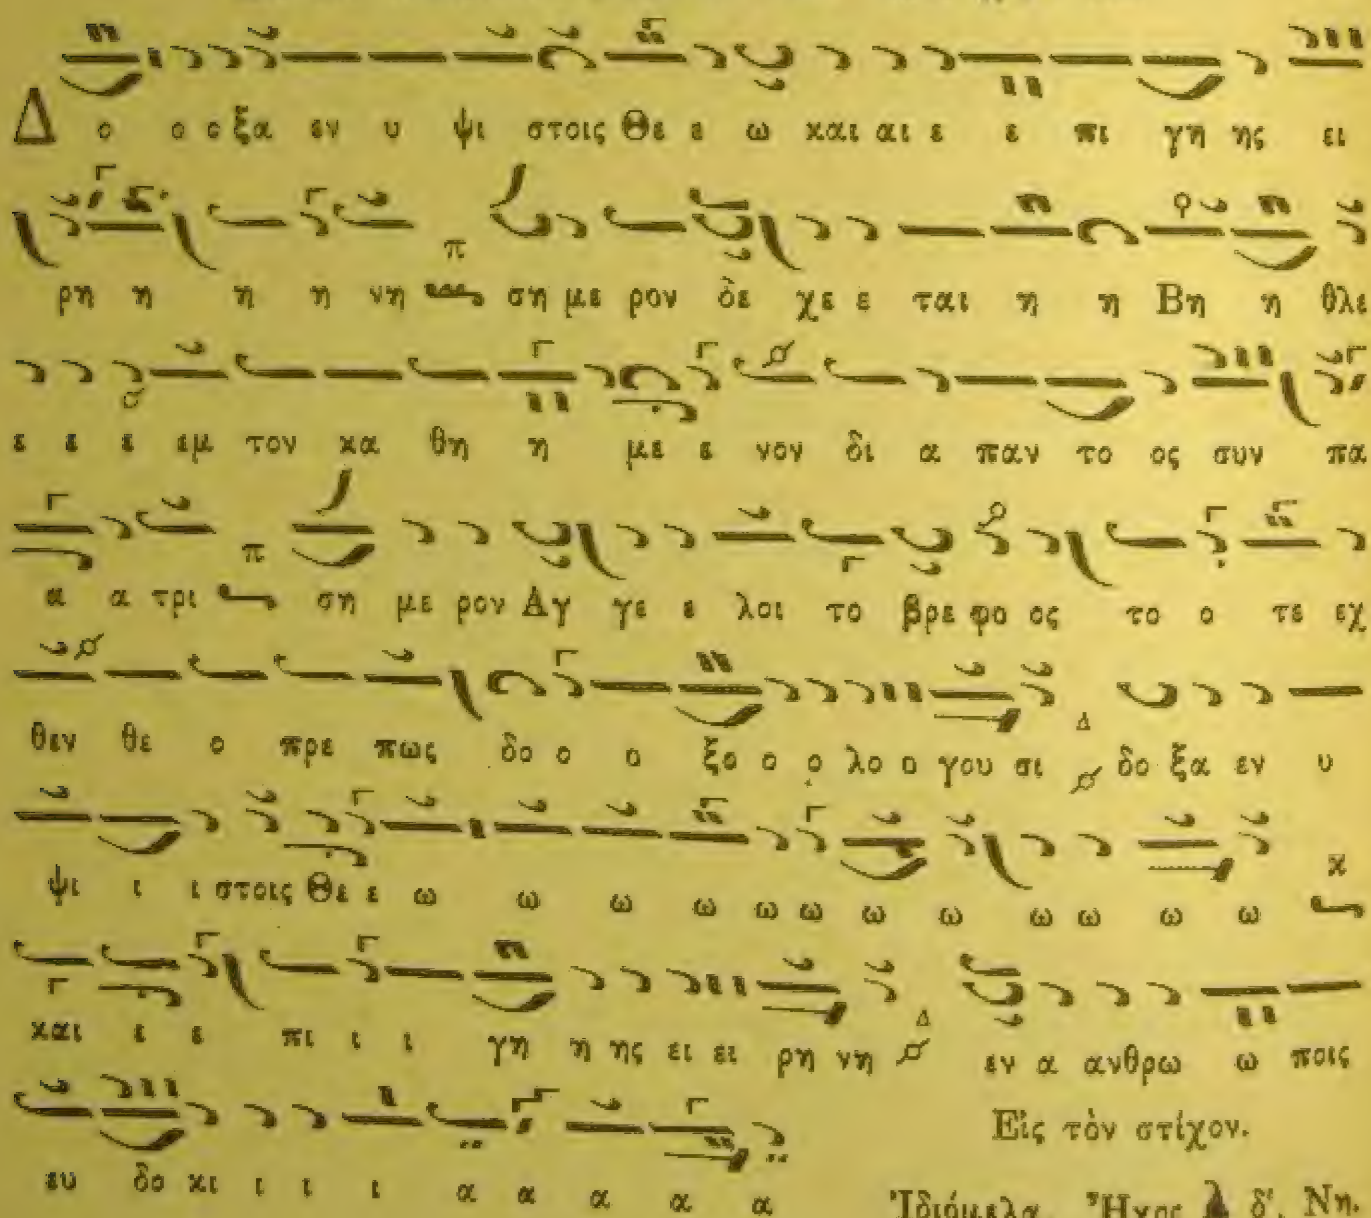 Δ ο ο ο ξα εν υ ψι στοις Θε ε ω και αι ε ε πι γη ης ει
ρη η η η νη ση με ρον δε χε ε ται η η Βη η θλε
ε ε ε εμ τον κα θη η με ε νον δι α παν το ος συν πα
α α τρι ση με ρον Αγ γε ε λοι το βρε φο ος το ο τε εχ
θεν θε ο πρε πως δο ο ο ξο ο ο λο ο γου σι δο ξα εν υ
ψι ι ι στοις Θε ε ω ω ω ω ω ω ω ω ω ω ω ω
και ε ε πι ι ι γη η ης ει ει ρη νη εν α ανθρω ω ποις
ευ δο κι ι ι ι α α α α α
Εἰς τὸν στίχον.
Ἰδιόμελα. Ἦχος δ΄. Νη.